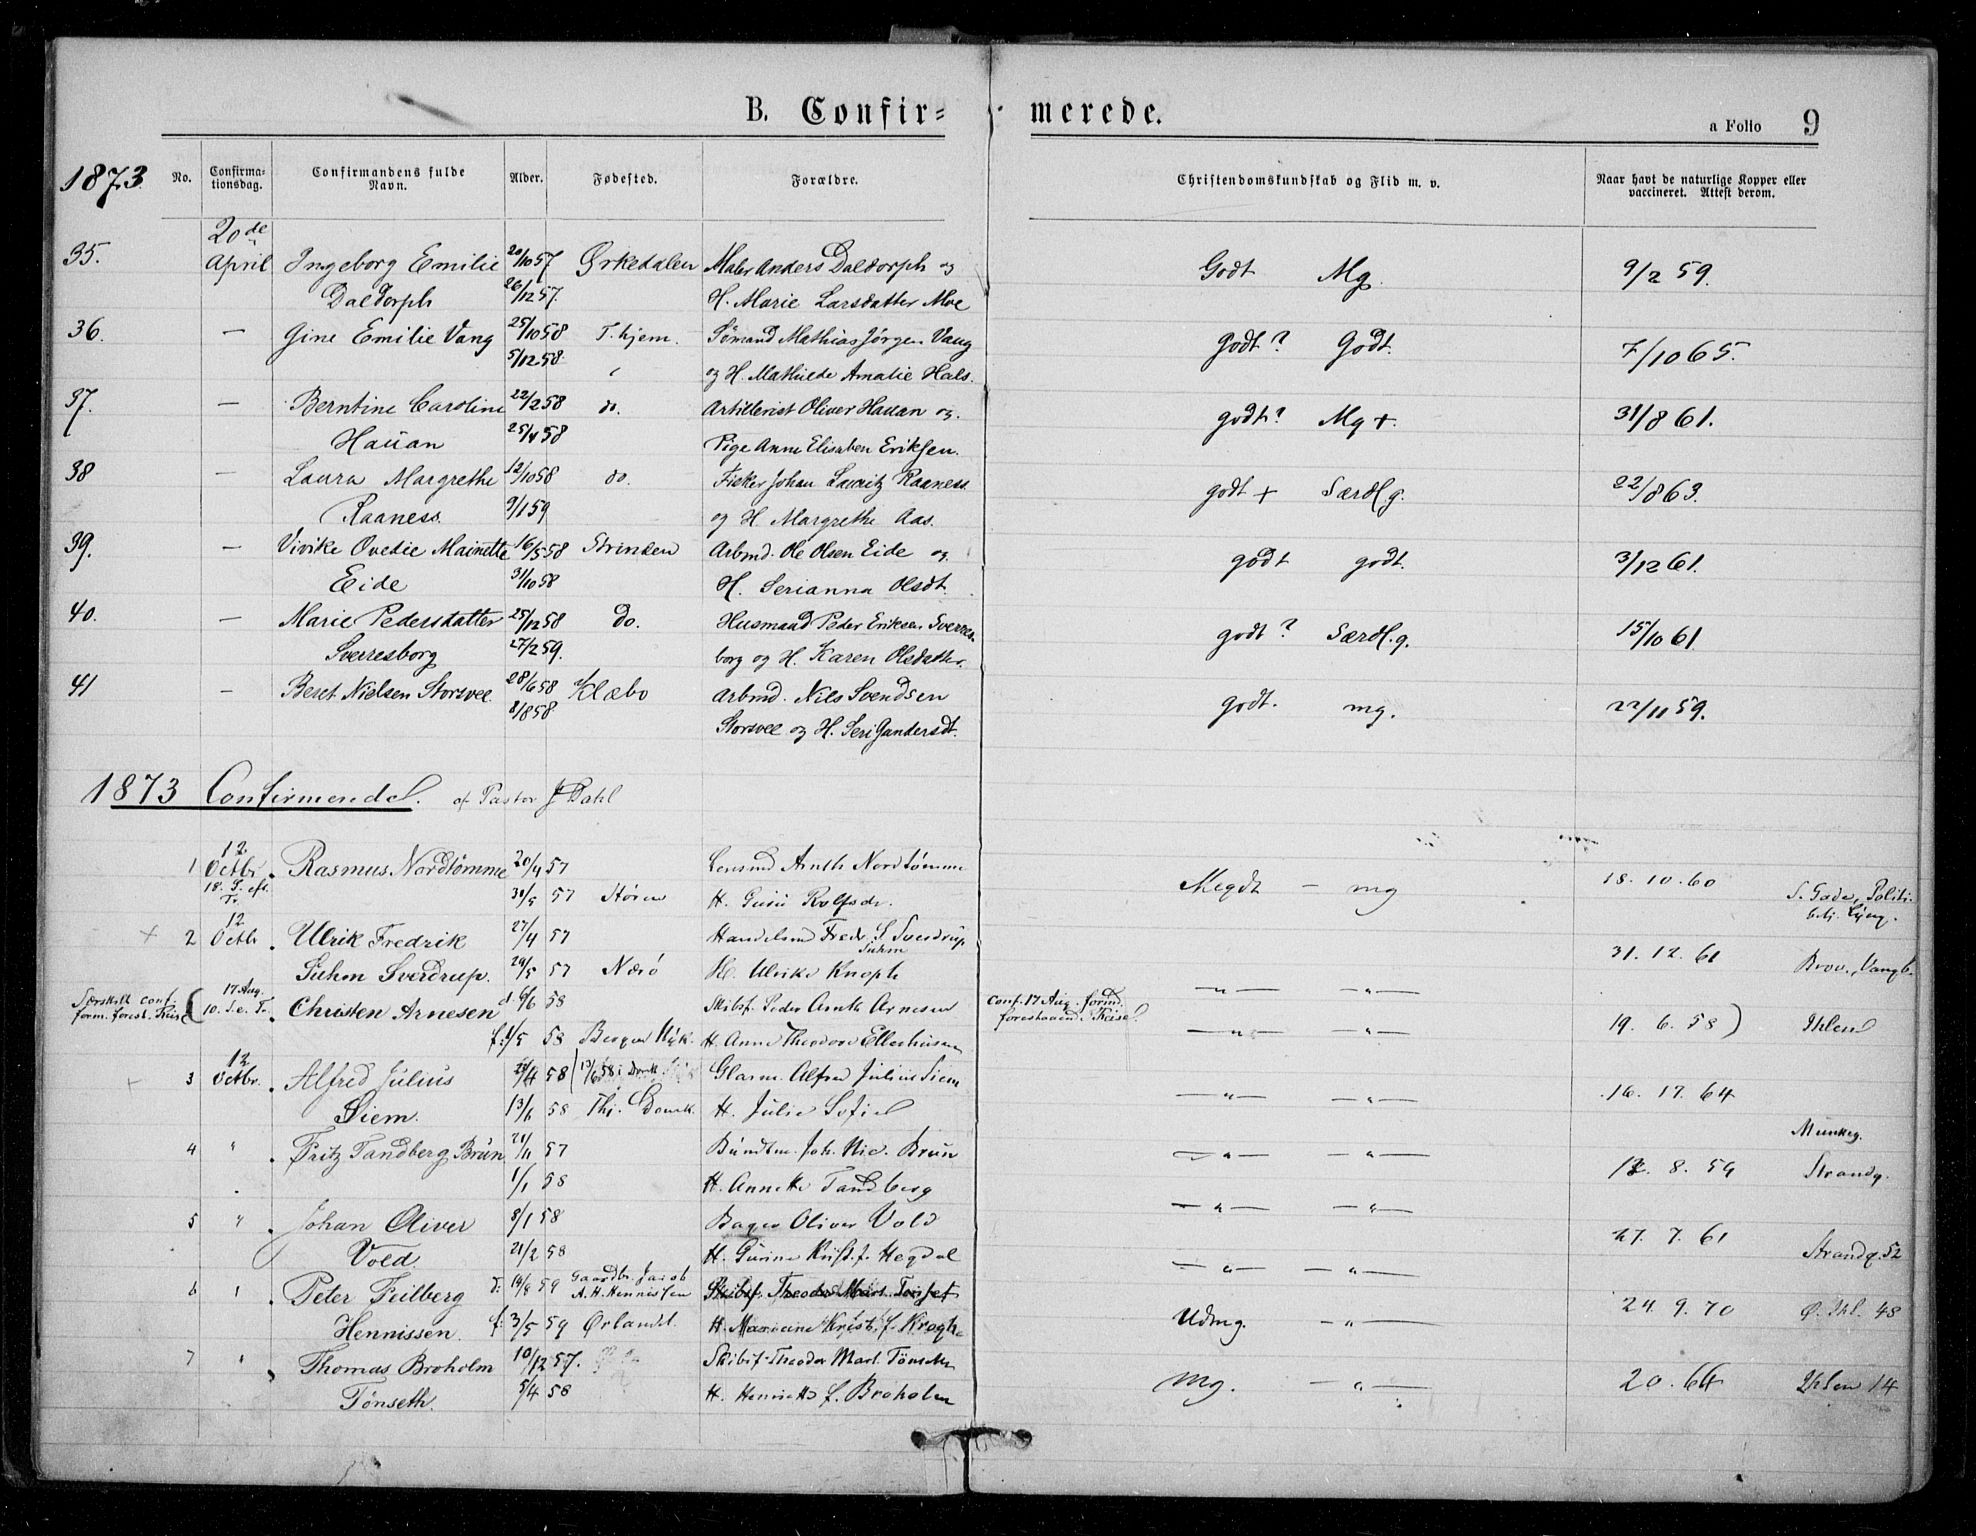 B. Confir= merede.
a Folio 9
1873
No. Confirma-tionsdag. Confirmandens fulde Navn. Alder. Fødested. Forældre. Christendomskundskab og Flid m. v. Naar havt de naturlige Kopper eller vaccineret. Attest derom.
20de
35. April Ingeborg Emilie 20/10 57 Ørkedalen Maler Anders Daldorph og Godt Mg. 9/2 59.
Daldorph 26/12 57. H. Marie Larsdatter Moe
36. — Gine Emilie Vang 25/10 58 T.hjem. Sömand Mathias Jørgen Vang godt? Godt. 7/10 65.
5/12 58. og H. Mathilde Amalie Hals.
37. — Berntine Caroline 22/2 58 do. Artillerist Oliver Hauan og godt? Mg +. 31/8 61.
Hauan 25/4 58 Pige Anne Elisaben Eriksen.
38 — Laura Margrethe 12/10 58 do. Fisker Johan Lauritz Raaness godt + Særdl.g. 22/8 63.
Raaness. 9/1 59 og H. Margrethe Aas.
39. — Vivike Ovedie Mainette 16/5 58 Strinden Arbmd. Ole Olsen Eide og godt godt. 3/12 61.
Eide 31/10 58 H. Serianna Olsdt.
40. — Marie Pedersdatter 25/12 58 do. Husmand Peder Eriksen Sverres- godt? Særdl.g. 15/10 61.
Sverresborg 27/2 59. borg og H. Karen Olsdatter.
41 — Beret Nielsen Storsvee. 28/6 58 Klæbo Arbmd. Nils Svendsen godt. mg. 22/11 59.
8/8 58 Storsvee og H. Seri Gundersdt.
1873 Confirmerede. af Pastor J Dahl
12
1 Octbr. Rasmus Nordtömme 20/4 57 Arnth Nordtömme Megdt — mg 18. 10. 60
18. S. eft. Tr. 31/5 57 Støren H. Guru Rolfsdr.
12
2 Octbr. Ulrik Fredrik 27/4 57 Handelsmd Fredr. S. Sverdrup 31. 12. 61
Suhm
Suhm Sverdrup. 24/5 57 Nærö H. Ulrike Knoph — " — — " —
Særskilt conf. 17 Aug. 10. S. e. Tr. Christen Arnesen d. 6/6 58 Skibsf. Peder Arnth Arnesen Conf. 17 Aug. formd. — " — — " — 19. 6. 58) Ihlen
form. forest. Reise forestaaende Reise.
f. 1/5 58 Bergen H. Anne Theodore Ellerhusen
12
3 Octbr. Alfred Julius 58 Glarm. Alfred Julius Siem — " — — " — 16. 17. 64
Siem. 13/6 58 Thj. H. Julie Sofie
4 " Fritz Tandberg Brun 21/11 57 Bundtm. Joh. Nic. Brun — " — — " — 8. 59 Munkeg. Strandg.
1/1 58 H. Annette Tandberg
5 " Johan Oliver 8/1 58 Bager Oliver Vold — " — — " — 27. 7. 61 Strandg. 52
Vold. 21/2 58 H. Gurine Krist. f. Hegdal — " — — " —
6 " Peter Feilberg D. 14/8 59 Gaardbr. Jacob A. H. Hennissen Skibsf. Theodor Mart. Tønset 24. 9. 70 Ø. Ihl. 48
Hennissen. f. 3/5 59 Ørlandet. H. Mariane Krist. f. Krogh Udmg. — " —
7 " Thomas Broholm 10/12 57. Skibsf. Theodor Mart. Tønseth Mg. — " — 20. 64 Ihlen 14
Tønseth. 5/4 58 H. Henriette f. Broholm